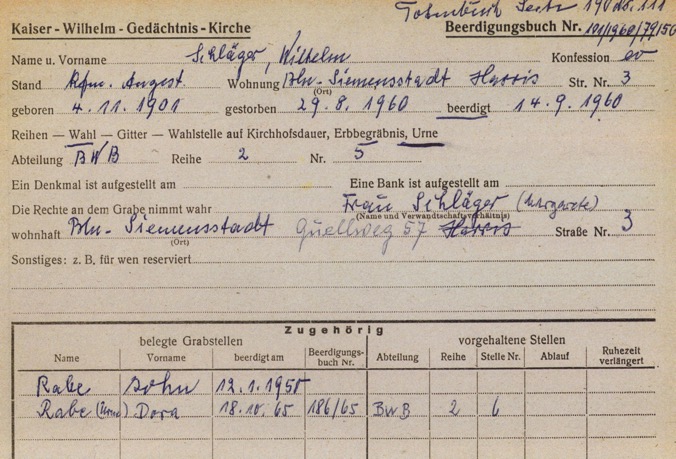 Totenbuch Seite 190 No. 111
Kaiser - Wilhelm - Gedächtnis - Kirche Beerdigungsbuch Nr. 101/1960/79/50
Name u. Vorname Schläger, Wilhelm Konfession ev
Stand Kfm. Angest. Wohnung Bln- Siemensstadt Harris Str. Nr. 3
(Ort)
geboren 4.11.1901 gestorben 29.8.1960 beerdigt 14.9.1960
Reihen — Wahl — Gitter — Wahlstelle auf Kirchhofsdauer, Erbbegräbnis, Urne
Abteilung BWB Reihe 2 Nr. 5
Ein Denkmal ist aufgestellt am Eine Bank ist aufgestellt am
Die Rechte an dem Grabe nimmt wahr Frau Schläger (Margarete)
(Name und Verwandtschaftsverhältnis)
wohnhaft Bln- Siemensstadt Quellweg 57 Harris Straße Nr. 3
(Ort)
Sonstiges: z. B. für wen reserviert
Zugehörig
belegte Grabstellen vorgehaltene Stellen
Name Vorname beerdigt am Beerdigungs-buch Nr. Abteilung Reihe Stelle Nr. Ablauf Ruhezeit verlängert
Rabe John 12.1.1950
Rabe (Urne) Dora 18.10.65 186/65 BWB 2 6